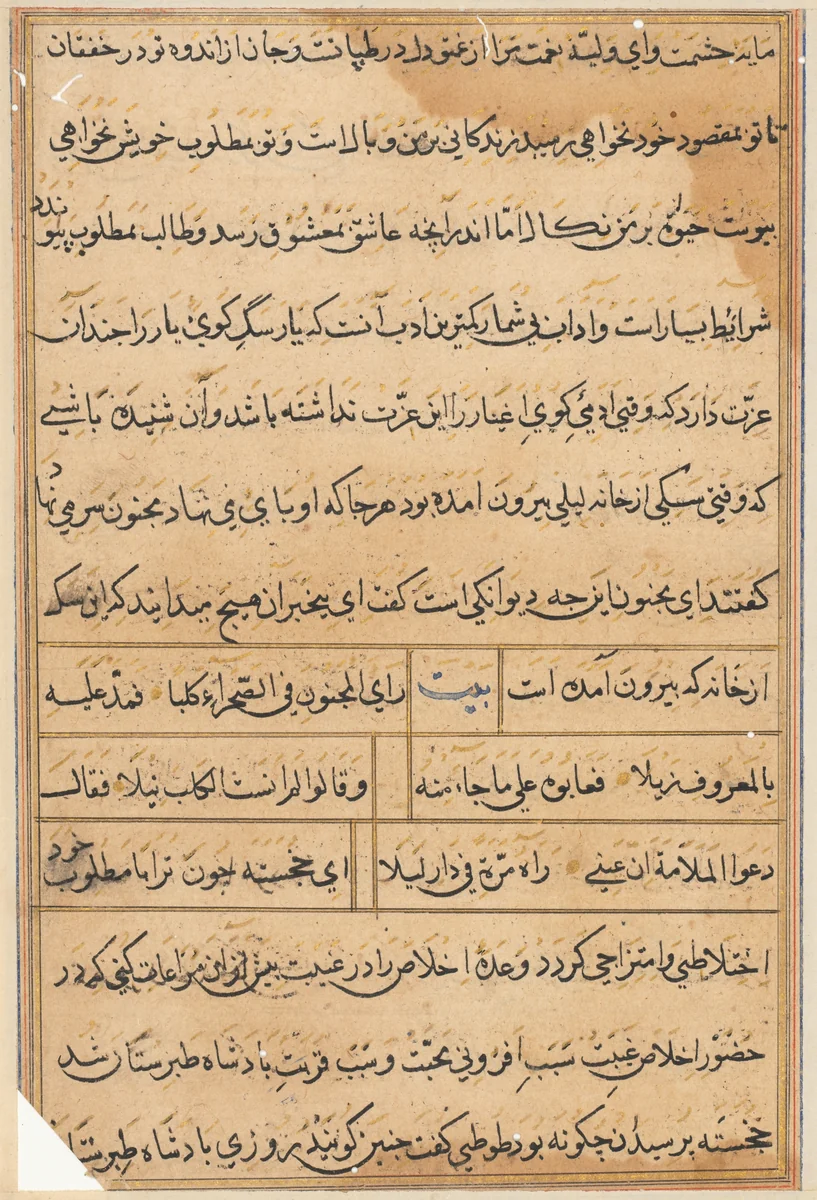 مایه حشمت وای ولیـﮥ نعمت مرا از غم تو دل در طپانست وجان از اندوه تو در خفقان
تا تو بمقصود خود نخواهی رسید زندکانی بر من وبال است وتو بمطلوب خویش نخواهی
پیوست حیوة بر من نکال امّا اندرانچه عاشق بمعشوق رسد وطالب بمطلوب پیوندد
شرائط بسیار است واداب بی شمار کمترین ادب آنست که یار سگِ کوی یار را جندان
عزّت دارد که وقتی ادمیِٔ کویِ اغیار را این عزّت نداشته باشد وآن شنیده باشیی
که وقتی سکی از خانه لیلی بیرون امده بود هر جا که او پای می نهاد مجنون سر می نهاد
کفتند ای مجنون این جه دیوانکی است کفت ای بیخبران هیج میدانید که این سک
از خانه که بیرون آمده است بیت رای المجنون فی الصّحراءِ کلبا فمدّ علیه
بالمعروف زیلا فعابوه علی ما جاء منه وقالوا لم انست الکلب نیلا فقال
دعوا الملامة انّ عینی راه مرّة فی دار لیلا ای خجسته جون ترا با مطلوب خود
اختلاطی وامتزاجی کردد وعدهٔ اخلاص را در غیبت بیش از ان مراعات کنی که در
حضور اخلاص غیبت سبب افزونی محبّت وسبب قربتِ بادشاه طبرستان شد
خجسته پرسید ان چکونه بود طوطی کفت جنین کویند روزی بادشاه طبرستان